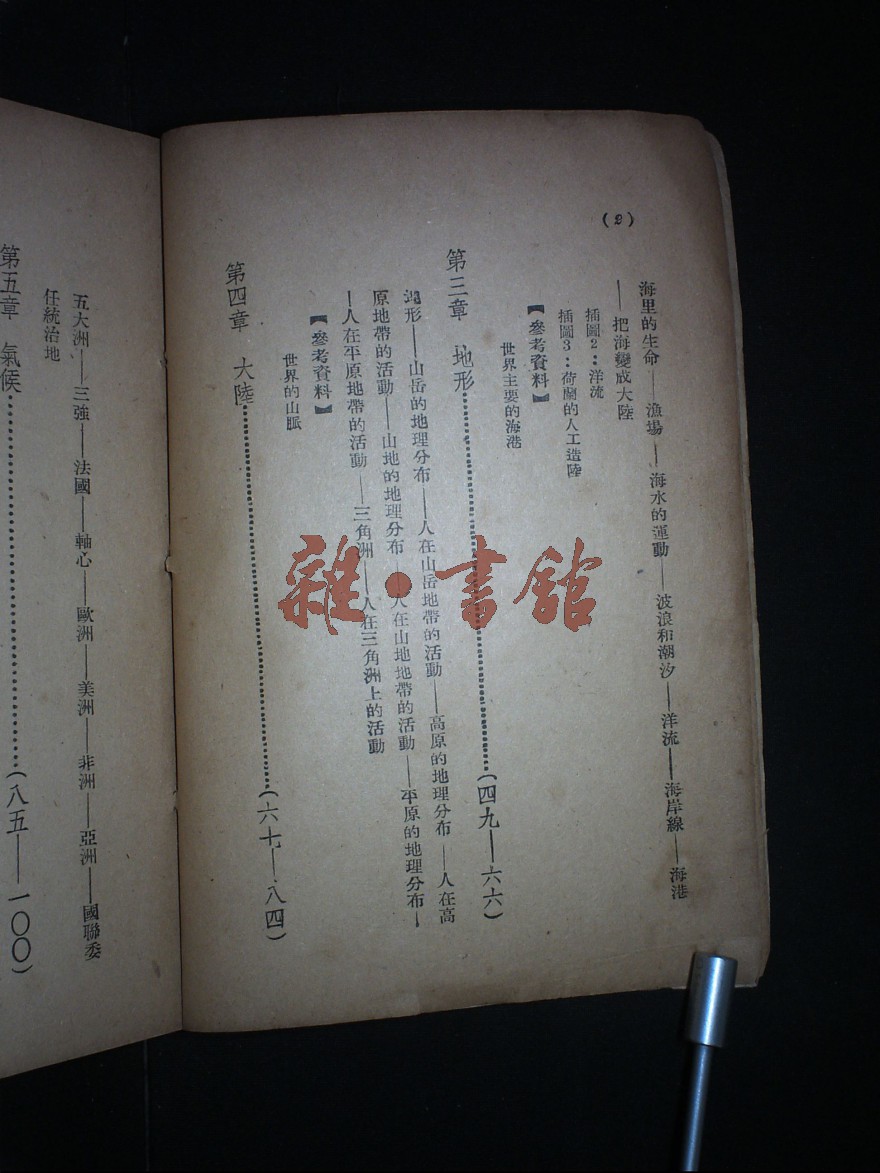 (2)
海里的生命——漁場——海水的運動——波浪和潮汐——洋流——海岸線——海港
——把海變成大陸
插圖2：洋流
插圖3：荷蘭的人工造陸
【參考資料】
世界主要的海港
第三章 地形……(四九—六六)
地形——山岳的地理分布——人在山岳地帶的活動——高原的地理分布——人在高
原地帶的活動——山地的地理分布——人在山地地帶的活動——平原的地理分布—
—人在平原地帶的活動——三角洲——人在三角洲上的活動
【參考資料】
世界的山脈
第四章 大陸……(六七—八四)
五大洲——三強——法國——軸心——歐洲——美洲——非洲——亞洲——國聯委
任統治地
第五章 氣候……(八五—一〇〇)
雜·書館